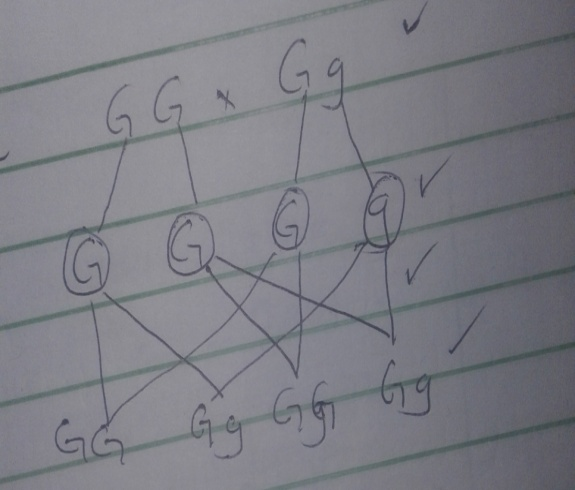 GG x Gg
G G G g
GG Gg GG Gg